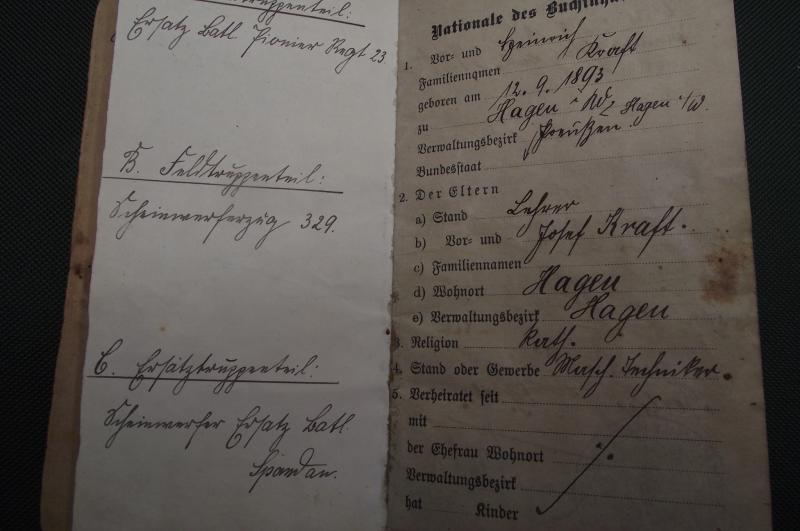 truppenteil:
Ersatz Batl. Pionier Regt 23
B. Feldtruppenteil:
Scheinwerferzug 329.
C. Ersatztruppenteil:
Scheinwerfer Ersatz Batl.
Spandau.
Nationale des Buchinha
1. Vor- und Heinrich
Familiennamen Kraft
geboren am 12. 9. 1893
zu Hagen
Verwaltungsbezirk Hagen i/W.
Bundesstaat Preußen.
2. Der Eltern
a) Stand Lehrer
b) Vor- und Josef Kraft.
c) Familiennamen
d) Wohnort Hagen
e) Verwaltungsbezirk Hagen
3. Religion kath.
4. Stand oder Gewerbe Masch. Techniker.
5. Verheiratet seit
mit
der Ehefrau Wohnort
Verwaltungsbezirk
hat Kinder